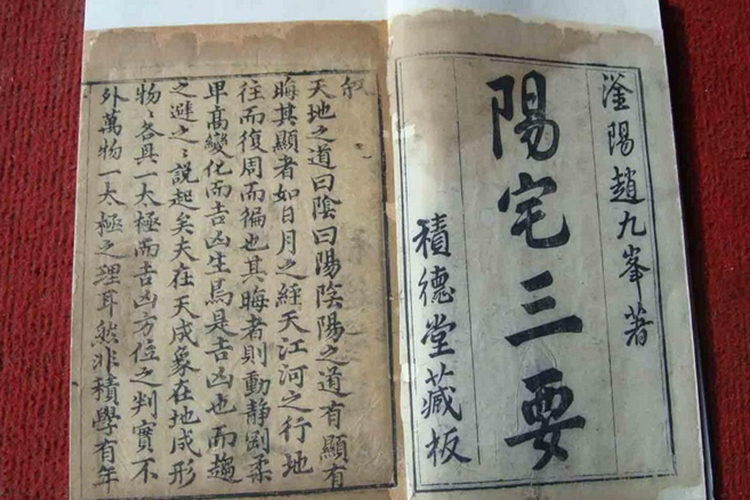 滏陽趙九峯著
陽宅三要
積德堂藏板
叙
天地之道曰陰曰陽陰陽之道有顯有
晦其顯者如日月之經天江河之行地
往而復周而徧也其晦者則動静剛柔
甲高變化而吉凶生焉是吉凶也而趨
之避之〻説起矣夫在天成象在地成形
物〻各具一太極而吉凶方位之判實不
外萬物一太極之理耳然非積學有年